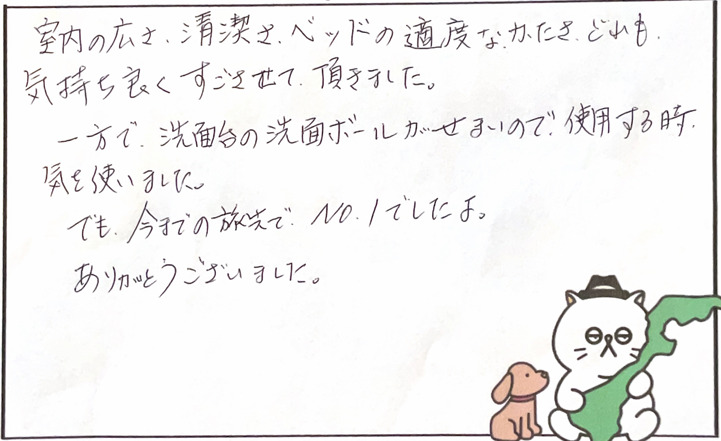 室内の広さ、清潔さ、ベッドの適度な、かたさ、どれも、
気持ち良くすごさせて、頂きました。
一方で、洗面台の洗面ボールがせまいので、使用する時、
気を使いました。
でも、今までの旅先で、NO.1でしたよ。
ありがとうございました。